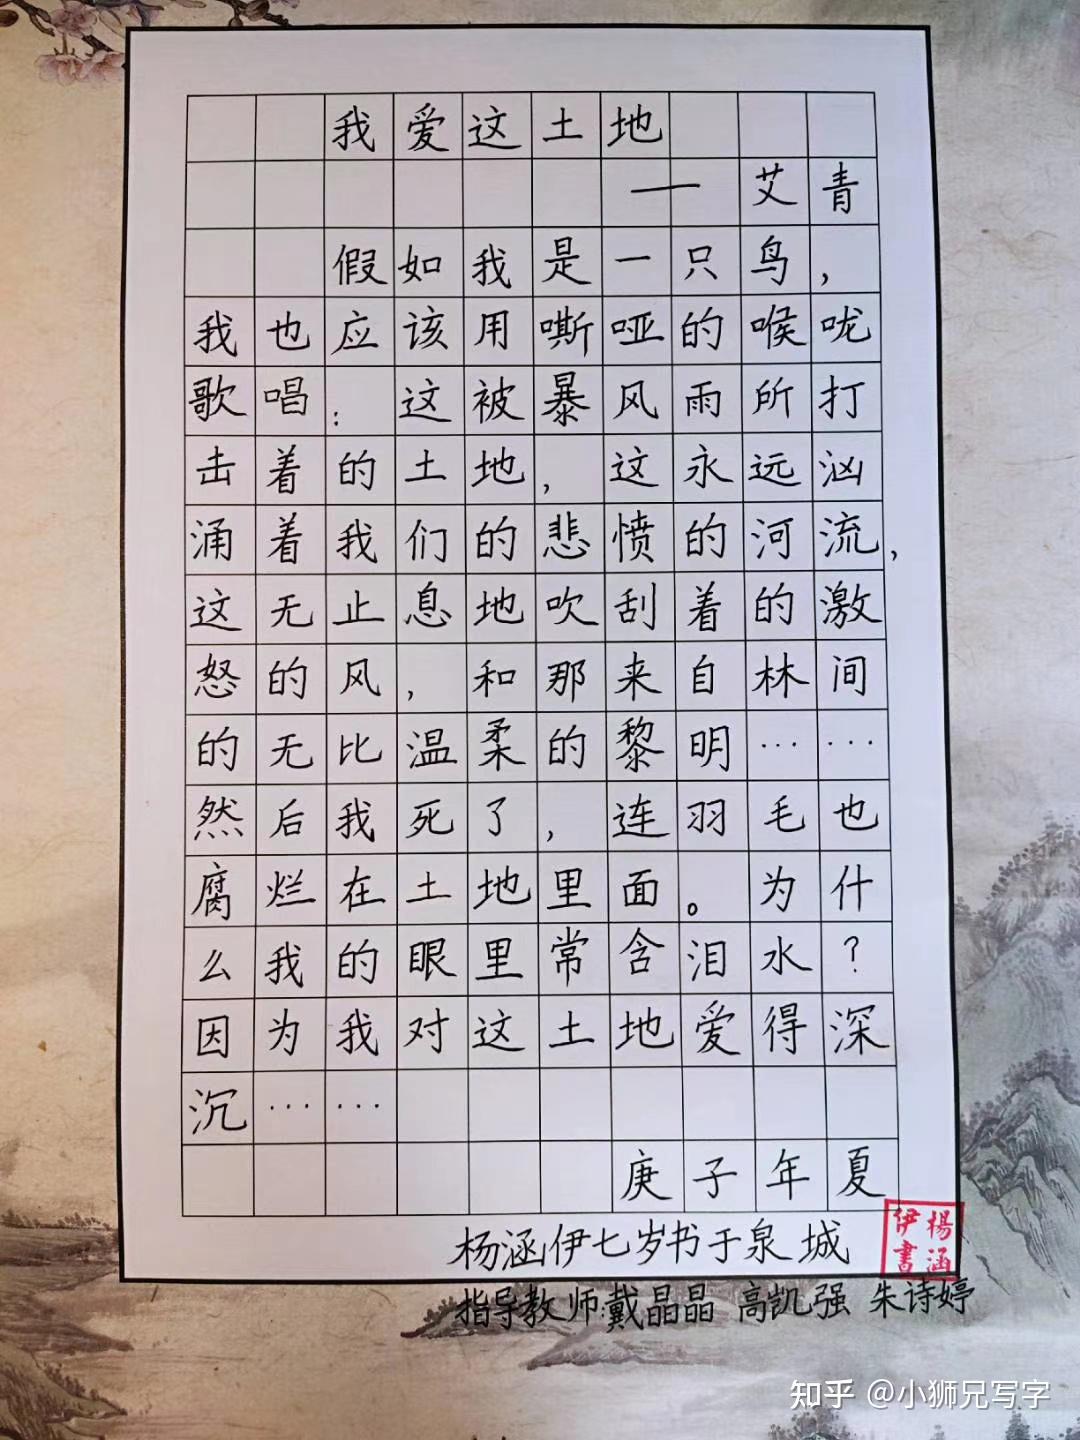 我爱这土地
——艾青
假如我是一只鸟，
我也应该用嘶哑的喉咙
歌唱：这被暴风雨所打
击着的土地，这永远汹
涌着我们的悲愤的河流，
这无止息地吹刮着的激
怒的风，和那来自林间
的无比温柔的黎明……
然后我死了，连羽毛也
腐烂在土地里面。为什
么我的眼里常含泪水？
因为我对这土地爱得深
沉……
庚子年夏
杨涵伊七岁书于泉城
楊涵伊書
指导教师:戴晶晶 高凯强 朱诗婷
知乎 @小狮兄写字